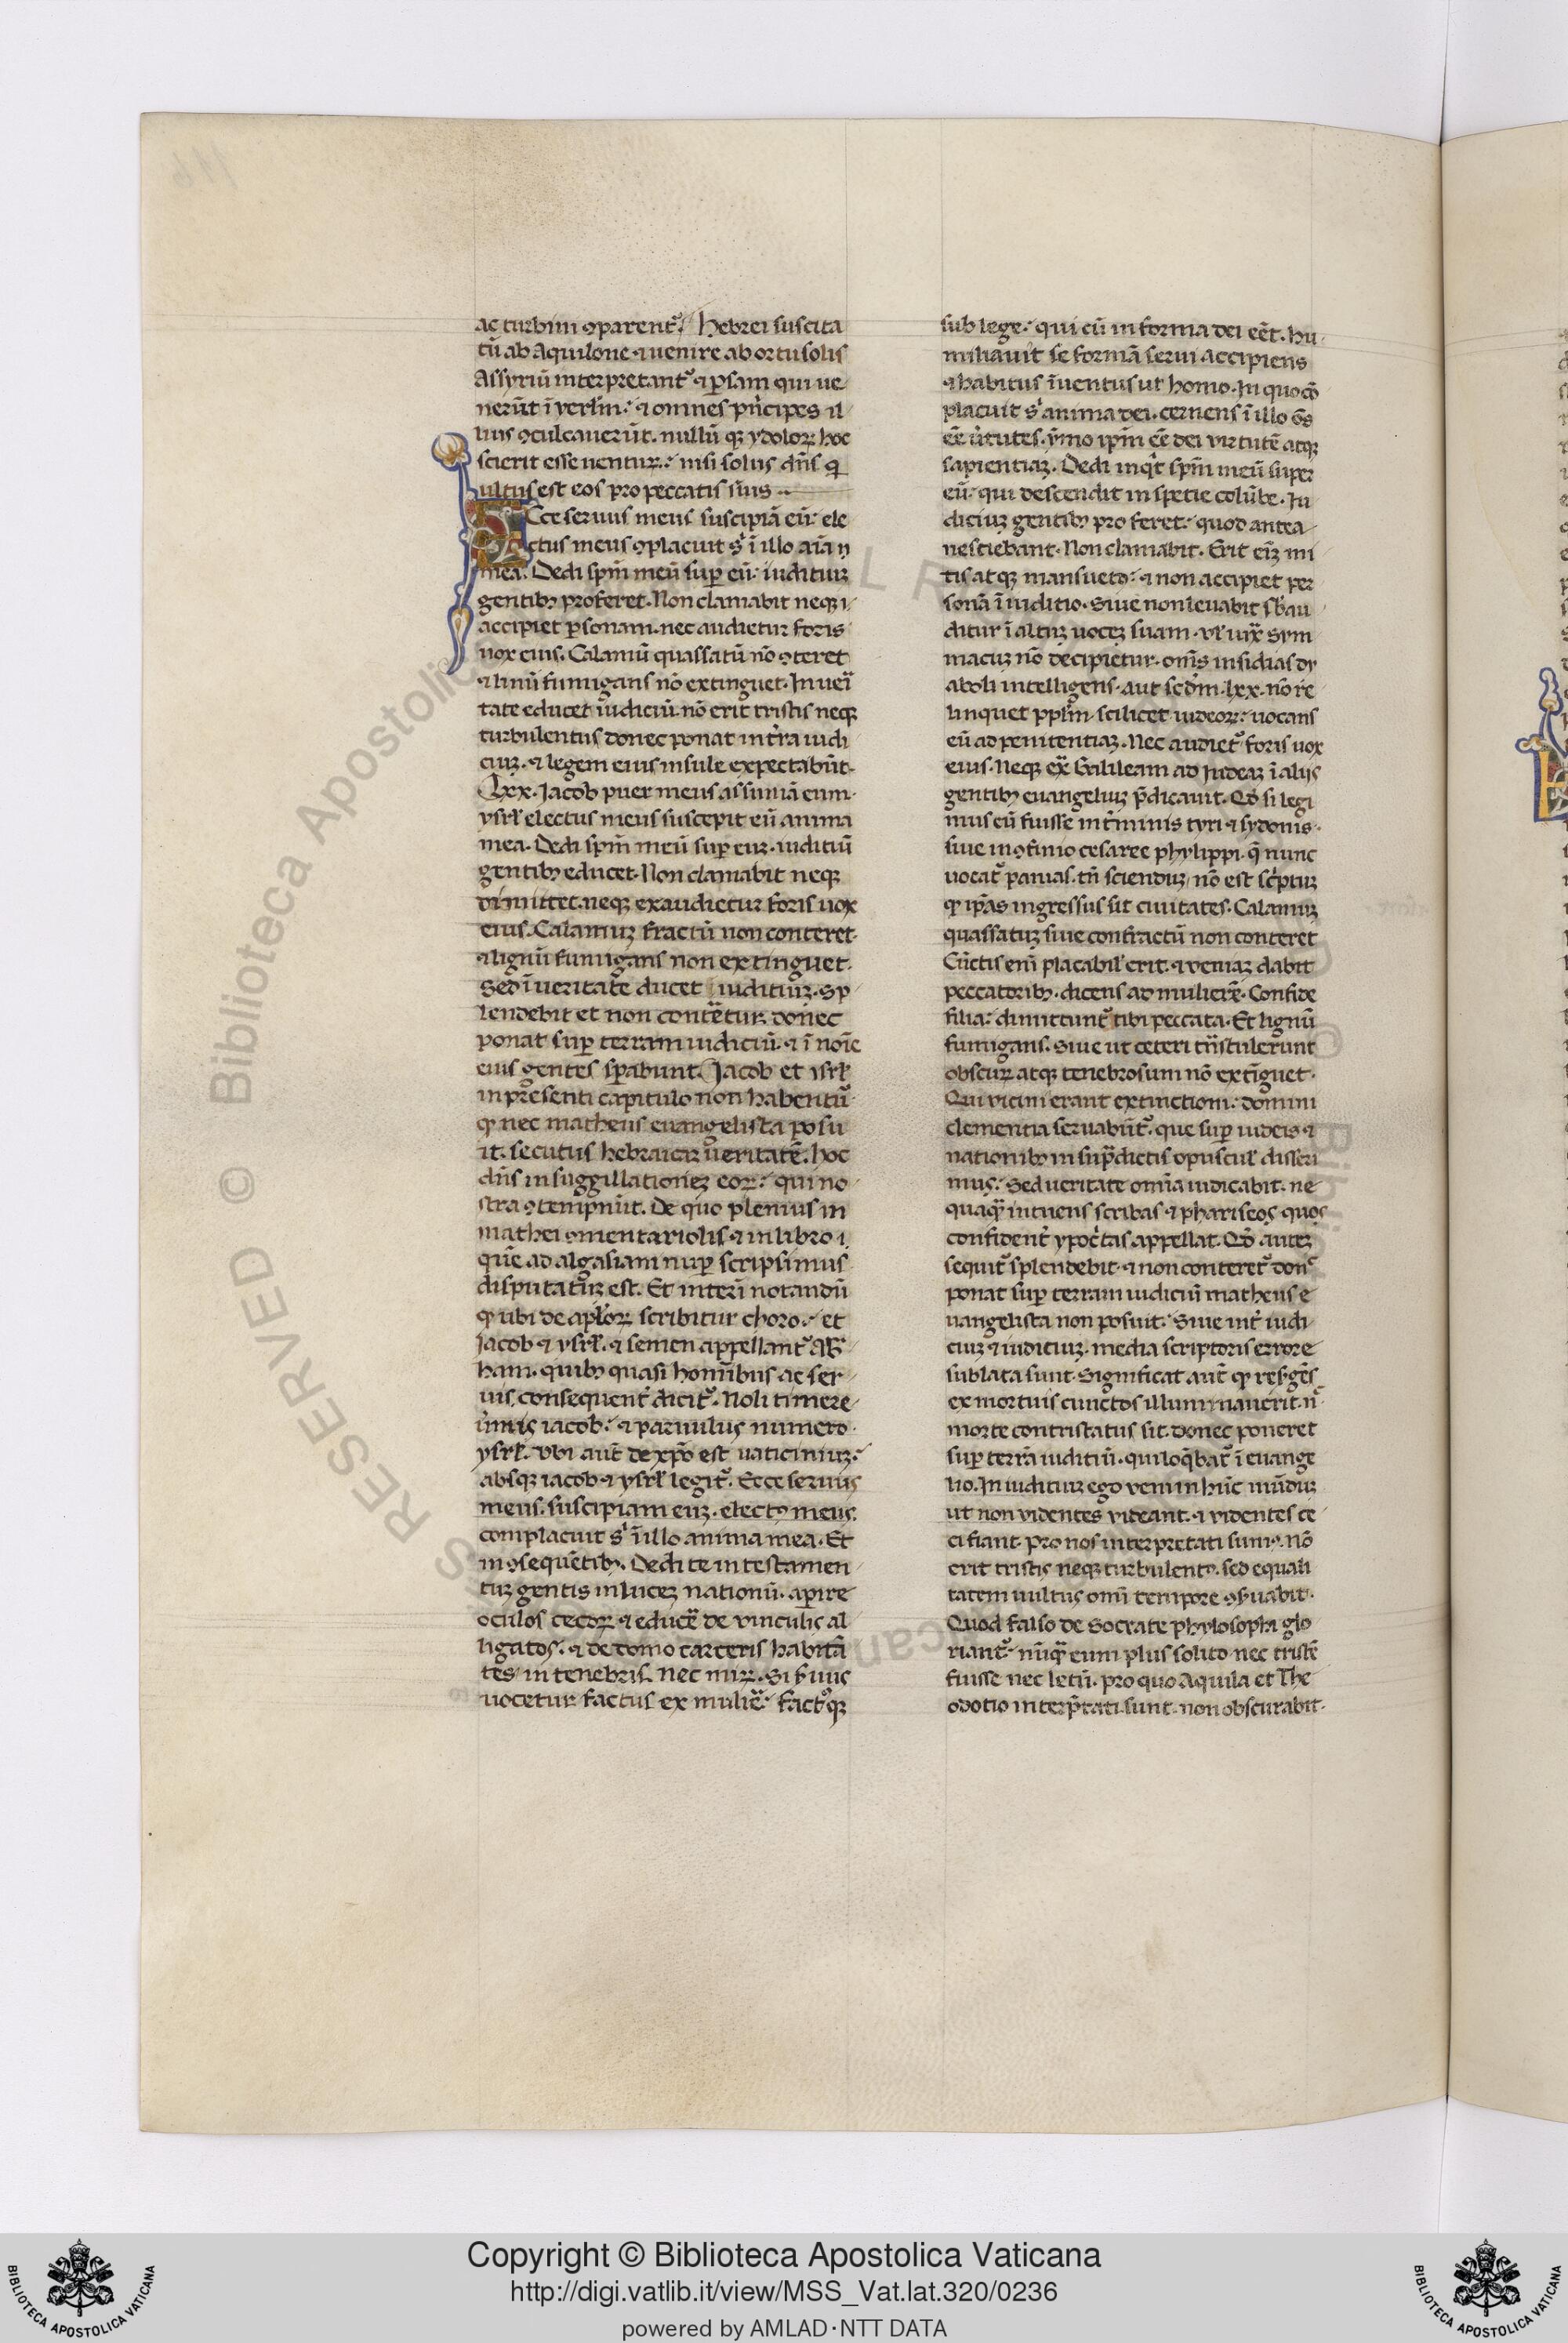 ac turbini ꝯparent᷑. Hebrei suscita
tū ab Aquilone ⁊ uenire ab ortu solis
Assyriū interpretant᷑ ⁊ ꝑsam qui ue
nerūt ī yerlm̄: ⁊ omnes pͥncipes il
lius ꝯculcauerūt. nullū qꝫ ydoloꝝ hoc
scierit esse uentuꝝ: nisi solus dn̄s q
ultus est eos pro peccatis suis
Ecce seruus meus suscipiā eū: ele
ctus meus ꝯplacuit sͥ ī illo aīa
mea. Dedi spm̄ meū suꝑ eū: iuditiuꝫ
gentibꝫ proferet. Non clamabit neqꝫ
accipiet ꝑsonam. nec audietur foris
uox eius. Calamū quassatū nō ꝯteret
⁊ linū fumigans nō extinguet. In ueri
tate educet iudiciū. nō erit tristis neqꝫ
turbulentus donec ponat in tr̄ra iudi
ciuꝫ. ⁊ legem eius insule expectabūt.
Lxx. Jacob puer meus assumā eum.
ysrl̄ electus meus suscepit eū anima
mea. Dedi spm̄ meū suꝑ euꝫ. iuditiū
gentibꝫ educet. Non clamabit neqꝫ
dimittet. neqꝫ exaudietur foris uox
eius. Calamuꝫ fractū non conteret.
⁊ lignū fumigans non extinguet.
Sed ī ueritate ducet iuditiuꝫ. Sp
lendebit et non conteretur. donec
ponat suꝑ terram iudiciū. ⁊ ī noīe
eius gentes sꝑabunt. Jacob et isrl̄
in presenti capitulo non habentur.
ꝙ nec matheus euangelista posu
it. secutus hebraicā ueritatē. hoc
dn̄s in suggillationeꝫ eoꝝ: qui no
stra ꝯtempnūt. De quo plenius in
mathei ꝯmentariolis. ⁊ in libro
quē ad algasiam nuꝑ scripsimus
disputatum est. Et interī notandū
ꝙ ubi de apl̄oꝝ scribitur choro: et
Jacob ⁊ ysrl̄. ⁊ semen appellant᷑ Abͣ
ham. quibꝫ quasi hominibus ac ser
uis consequent̄ dicit᷑. Noli timere
uermis iacob: ⁊ paruulus numero
ysrl̄. Ubi aut̄ de xpō est uaticiniuꝫ:
absqꝫ iacob ⁊ ysrl̄ legit᷑. Ecce seruus
meus. suscipiam euꝫ. electꝰ meus.
complacuit sͥ ī illo anima mea. Et
in ꝯsequētibꝫ. Dedi te in testamen
tuꝫ gentis in luceꝫ nationū. aperire
oculos cecoꝝ ⁊ educere de vinculis al
ligatos. ⁊ de domo carceris habitā
tes in tenebris. Nec miꝝ. Si seruus
uocetur factus ex muliere: factusqꝫ
sub lege: qui cū in forma dei eēt. hu
miliauit se formā serui accipiens
⁊ habitus īuentus ut homo. In quo cō
placuit sͥ anima dei. cernens ī illo oēs
eē uͥtutes. ymo ipm̄ eē dei virtutē atqꝫ
sapientiaꝫ. Dedi inqͥt spm̄ meū super
eū: qui descendit in spetie colūbe. Iu
diciuꝫ gentibꝫ proferet: quod antea
nesciebant. Non clamabit. Erit eniꝫ mi
tis atqꝫ mansuetꝰ: ⁊ non accipiet per
sonā ī iuditio. Siue non leuabit s; au
ditur ī altuꝫ uoceꝫ suam. vel iuxͣ Sym
macuꝫ nō decipietur. omīs insidias dy
aboli intelligens. aut secdm̄. lxx. nō re
linquet pplm̄. scilicet iudeoꝝ: uocans
eū ad penitentiaꝫ. Nec audiet᷑ foris uox
eius. Neqꝫ exͣ Galileam ad Iudeaꝫ ī alijs
gentibꝫ euangeliuꝫ p̄dicauit. Qd̄ si legi
mus eū fuisse in tͥminis tyri ⁊ sydonis.
siue in ꝯfinio cesaree phylippi. q̄ nunc
uocat᷑ panias. tn̄ sciendum nō est scͥptuꝫ
ꝙ ip̄as ingressus sit ciuitates. Calamuꝫ
quassatuꝫ siue confractū non conteret
Cūctis enī placabil̄ erit. ⁊ veniaꝫ dabit
peccatoribꝫ. dicens ad mulierē. Confide
filia: dimittunt᷑ tibi peccata. Et lignū
fumigans. Siue ut ceteri trāstulerunt
obscuꝝ atqꝫ tenebrosum nō extīguet.
Qui vicini erant extinctioni: domini
clementia seruabūt᷑. que suꝑ iudeis ⁊
nationibꝫ in suprͣdictis opuscul̄ disseru
mus. Sed ueritate omīa iudicabit. ne
quaqͣ intuens scribas ⁊ phariseos. quos
confident̄ ypocͥtas appellat. Qd̄ auteꝫ
sequit᷑ splendebit ⁊ non conteret᷑ donᶜ
ponat suꝑ terram iudiciū matheus e
uangelista non posuit: Siue int̄ iudi
ciuꝫ ⁊ iuditiuꝫ. media scriptoris errore
sublata sunt. Significat aut̄ ꝙ resurgēs
ex mortuis cunctos illuminauerit. nᶜ
morte contristatus sit. donec poneret
suꝑ terrā iuditiū. qui loqͥbat᷑ ī euange
lio. In iudituꝫ ego veni in hūc mūduꝫ
ut non videntes videant. ⁊ videntes ce
ci fiant. Pro nos interpretati sumꝰ. Nō
erit tristis neqꝫ turbulentꝰ. sed equali
tatem uultus omī tempore ꝯseruabit.
Quod falso de Socrate phylosophi glo
riant᷑. nūqͣ eum plus solito. nec tristē
fuisse nec letū. pro quo Aquila et The
odotio interpͣtati sunt. non obscurabit.
Copyright © Biblioteca Apostolica Vaticana
http://digi.vatlib.it/view/MSS_Vat.lat.320/0236
powered by AMLAD·NTT DATA